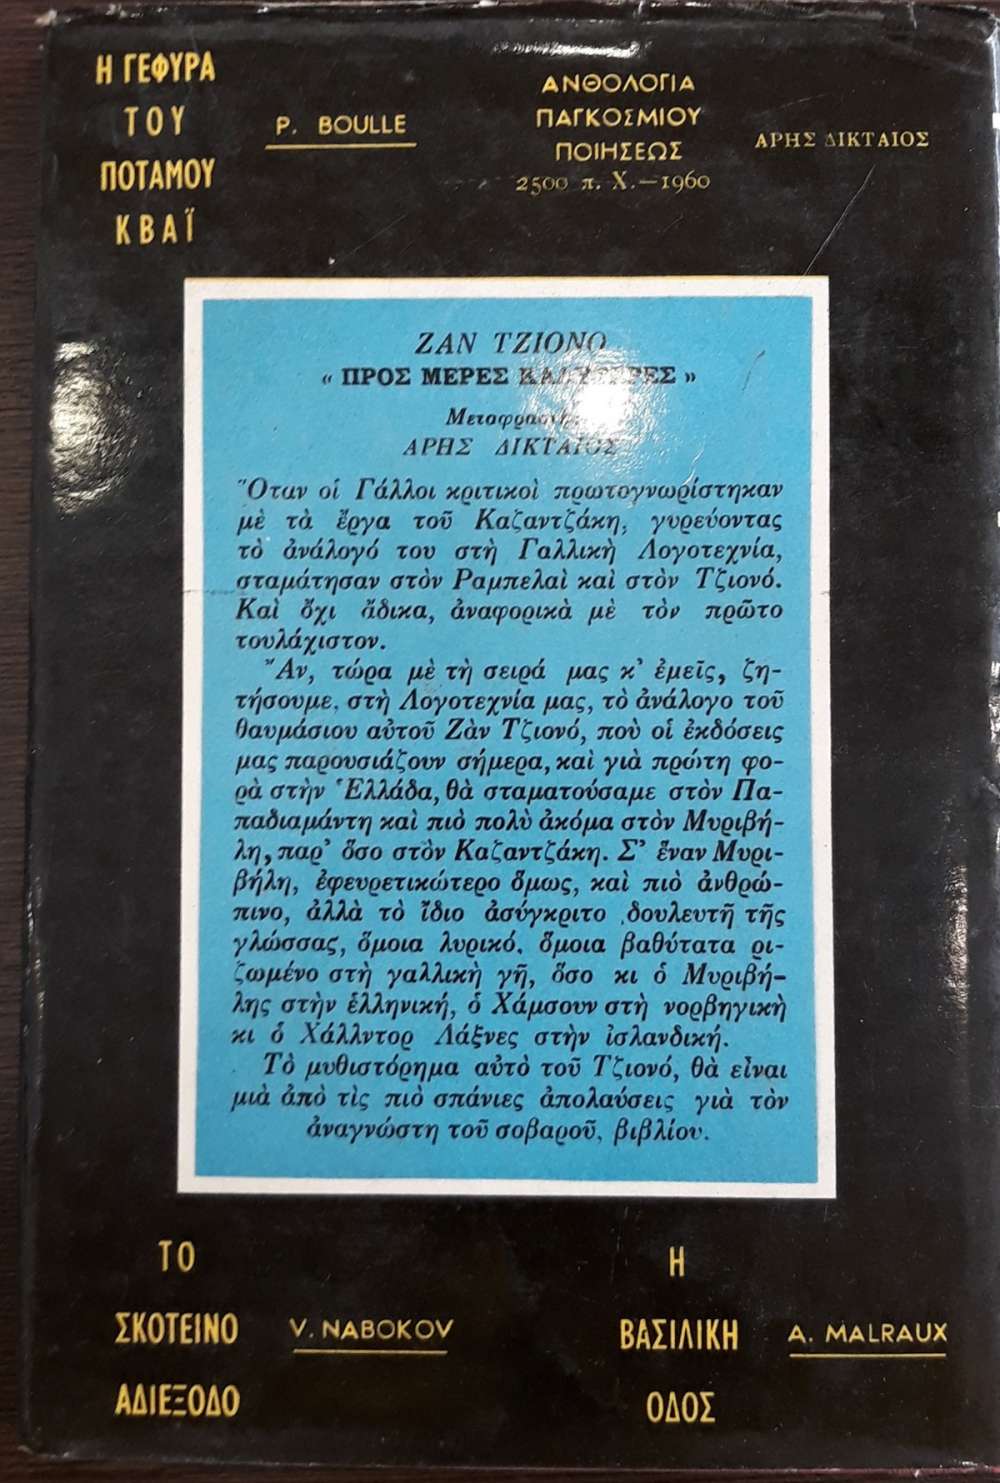 Η ΓΕΦΥΡΑ
ΤΟΥ
ΠΟΤΑΜΟΥ
ΚΒΑΪ
P. BOULLE
ΑΝΘΟΛΟΓΙΑ
ΠΑΓΚΟΣΜΙΟΥ
ΠΟΙΗΣΕΩΣ
2500 π. Χ.—1960
ΑΡΗΣ ΔΙΚΤΑΙΟΣ
ΖΑΝ ΤΖΙΟΝΟ
« ΠΡΟΣ ΜΕΡΕΣ ΚΑΛΥΤΕΡΕΣ »
Μεταφραση:
ΑΡΗΣ ΔΙΚΤΑΙΟΣ
Ὅταν οἱ Γάλλοι κριτικοὶ πρωτογνωρίστηκαν
μὲ τὰ ἔργα τοῦ Καζαντζάκη, γυρεύοντας
τὸ ἀνάλογό του στὴ Γαλλικὴ Λογοτεχνία,
σταμάτησαν στὸν Ραμπελαὶ καὶ στὸν Τζιονό.
Καὶ ὄχι ἄδικα, ἀναφορικὰ μὲ τὸν πρῶτο
τουλάχιστον.
Ἄν, τώρα μὲ τὴ σειρά μας κ' ἐμεῖς, ζη-
τήσουμε, στὴ Λογοτεχνία μας, τὸ ἀνάλογο τοῦ
θαυμάσιου αὐτοῦ Ζὰν Τζιονό, ποὺ οἱ ἐκδόσεις
μας παρουσιάζουν σήμερα, καὶ γιὰ πρώτη φο-
ρὰ στὴν Ἑλλάδα, θὰ σταματούσαμε στὸν Πα-
παδιαμάντη καὶ πιὸ πολὺ ἀκόμα στὸν Μυριβή-
λη, παρ' ὅσο στὸν Καζαντζάκη. Σ' ἕναν Μυρι-
βήλη, ἐφευρετικώτερο ὅμως, καὶ πιὸ ἀνθρώ-
πινο, ἀλλὰ τὸ ἴδιο ἀσύγκριτο δουλευτῆ τῆς
γλώσσας, ὅμοια λυρικό, ὅμοια βαθύτατα ρι-
ζωμένο στὴ γαλλικὴ γῆ, ὅσο κι ὁ Μυριβή-
λης στὴν ἑλληνική, ὁ Χάμσουν στὴ νορβηγικὴ
κι ὁ Χάλλντορ Λάξνες στὴν ἰσλανδική.
Τὸ μυθιστόρημα αὐτὸ τοῦ Τζιονό, θὰ εἶναι
μιὰ ἀπὸ τὶς πιὸ σπάνιες ἀπολαύσεις γιὰ τὸν
ἀναγνώστη τοῦ σοβαροῦ, βιβλίου.
ΤΟ
ΣΚΟΤΕΙΝΟ
ΑΔΙΕΞΟΔΟ
V. NABOKOV
Η
ΒΑΣΙΛΙΚΗ
ΟΔΟΣ
A. MALRAUX